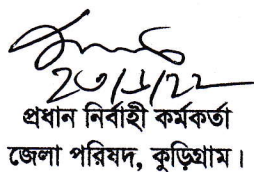 প্রধান নির্বাহী কর্মকর্তা
জেলা পরিষদ, কুড়িগ্রাম।